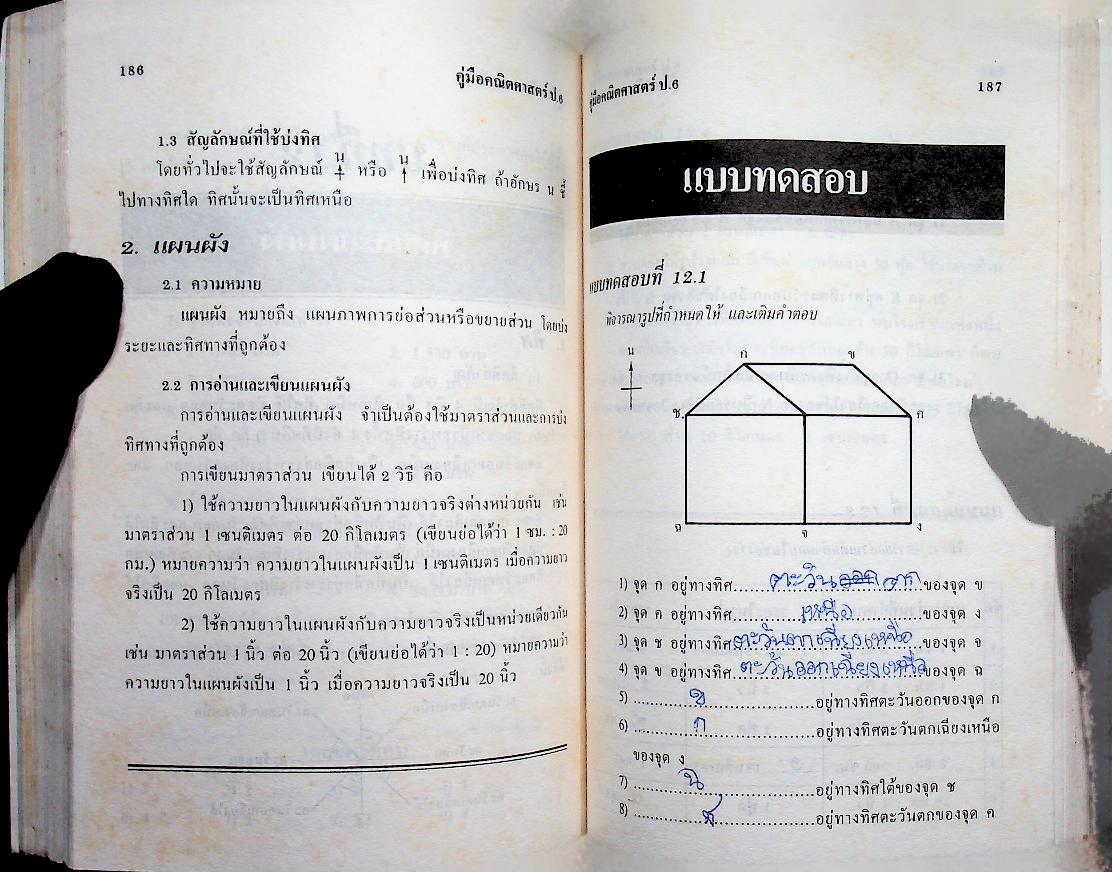 186
คู่มือคณิตศาสตร์ ป.6
1.3 สัญลักษณ์ที่ใช้บ่งทิศ
โดยทั่วไปจะใช้สัญลักษณ์ น หรือ น เพื่อบ่งทิศ ถ้าอักษร น ชี้
ไปทางทิศใด ทิศนั้นจะเป็นทิศเหนือ
2. แผนผัง
2.1 ความหมาย
แผนผัง หมายถึง แผนภาพการย่อส่วนหรือขยายส่วน โดยบ่ง
ระยะและทิศทางที่ถูกต้อง
2.2 การอ่านและเขียนแผนผัง
การอ่านและเขียนแผนผัง จำเป็นต้องใช้มาตราส่วนและการบ่ง
ทิศทางที่ถูกต้อง
การเขียนมาตราส่วน เขียนได้ 2 วิธี คือ
1) ใช้ความยาวในแผนผังกับความยาวจริงต่างหน่วยกัน เช่น
มาตราส่วน 1 เซนติเมตร ต่อ 20 กิโลเมตร (เขียนย่อได้ว่า 1 ซม. : 20
กม.) หมายความว่า ความยาวในแผนผังเป็น 1 เซนติเมตร เมื่อความยาว
จริงเป็น 20 กิโลเมตร
2) ใช้ความยาวในแผนผังกับความยาวจริงเป็นหน่วยเดียวกัน
เช่น มาตราส่วน 1 นิ้ว ต่อ 20 นิ้ว (เขียนย่อได้ว่า 1 : 20) หมายความว่า
ความยาวในแผนผังเป็น 1 นิ้ว เมื่อความยาวจริงเป็น 20 นิ้ว
คู่มือคณิตศาสตร์ ป.6
187
แบบทดสอบ
แบบทดสอบที่ 12.1
พิจารณารูปที่กำหนดให้ และเติมคำตอบ
น ก ข
ช ค
ฉ จ ง
1) จุด ก อยู่ทางทิศ ตะวัน ตก ของจุด ข
2) จุด ค อยู่ทางทิศ เหนือ ของจุด ง
3) จุด ช อยู่ทางทิศ ตะวันตกเฉียงเหนือ ของจุด จ
4) จุด ข อยู่ทางทิศ ตะวันออกเฉียงเหนือ ของจุด ฉ
5) ข อยู่ทางทิศตะวันออกของจุด ก
6) ก อยู่ทางทิศตะวันตกเฉียงเหนือ
ของจุด ง
7) ฉ อยู่ทางทิศใต้ของจุด ช
8) ช อยู่ทางทิศตะวันตกของจุด ค